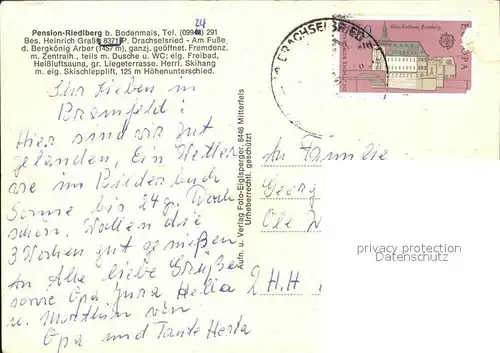 Pension-Riedlberg b. Bodenmais, Tel. (09924) 291
Bes. Heinrich Graßl, 8371 P. Drachselsried - Am Fuße
d. Bergkönig Arber (1457 m), ganzj. geöffnet. Fremdenz.
m. Zentralh., teils m. Dusche u. WC; eig. Freibad,
Heißluftsauna, gr. Liegeterrasse. Herrl. Skihang
m. eig. Skischlepplift, 125 m Höhenunterschied.
DRACHSELSRIED
Altes Rathaus Bamberg
EUROPA
DEUTSCHE BUNDESPOST
Ihr Lieben in
Bramfeld!
Hier sind wir gut
gelanden, Ein Wetter
wie im Bilderbuch
Sonne bis 24 g. Doch
schön. Wollen die
3 Wochen gut genießen
An Alle liebe Grüße
sowie Opa Jura Hella 2 H.H
u. von
Opa und Tante Herta
Aufn. u. Verlag Foto-Eiglsperger, 8446 Mitterfels
Urheberrechtl. geschützt
An Familie
Georg
Ole W
privacy protection
Datenschutz